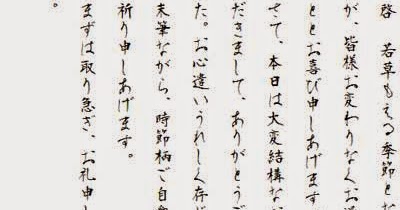 啓　若草もえる季節とな
が、皆様お変わりなくお過
ととお喜び申しあげます
さて、本日は大変結構な
だきまして、ありがとうご
た。お心遣いうれしく存じ
末筆ながら、時節柄ご自愛
祈り申しあげます。
まずは取り急ぎ、お礼申し
。